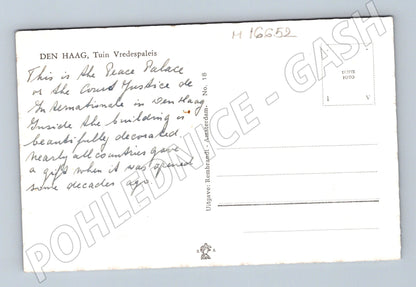 M 16652
DEN HAAG, Tuin Vredespaleis
This is the Peace Palace
or the Court Justice de
Internationale in Den Haag.
Inside the building is
beautifully decorated,
nearly all countries gave
a gift when it was opened
some decades ago.
Uitgave: Rembrandt - Amsterdam- No. 18
ECHTE
FOTO
POHLEDNICE - GASH